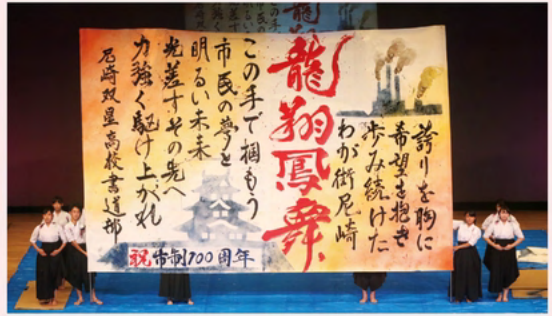 誇りを胸に
希望を抱き
歩み続けた
わが街尼崎
龍翔鳳舞
この手で掴もう
市民の夢と
明るい未来
光差すその先へ
力強く駆け上がれ
尼崎双星高校書道部
祝市制100周年